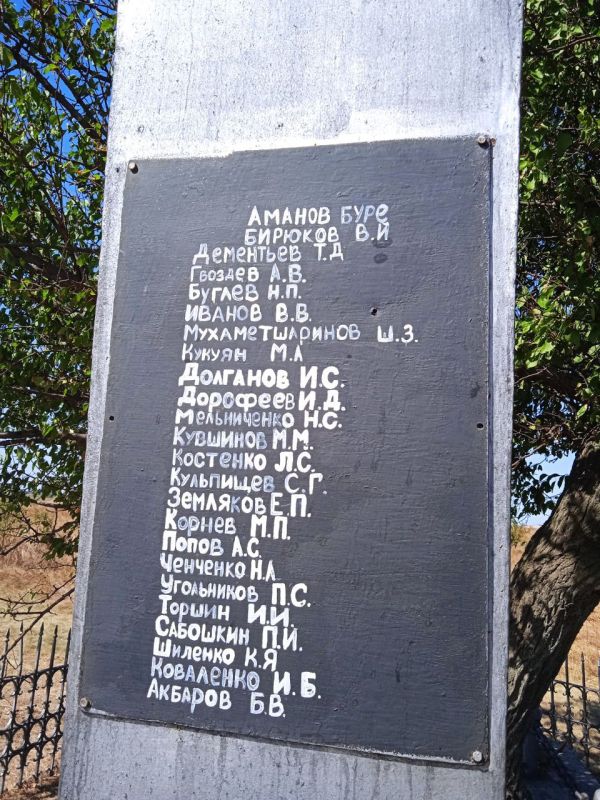 Аманов Буре
Бирюков В.И
Дементьев Т.Д
Гвоздев А.В.
Буглев Н.П.
Иванов В.В.
Мухаметшаринов Ш.З.
Кукуян М.А
Долганов И.С.
Дорофеев И.Д.
Мельниченко Н.С.
Кувшинов М.М.
Костенко Л.С.
Кульпищев С.Г.
Земляков Е.П.
Корнев М.П.
Попов А.С.
Ченченко Н.А
Угольников П.С.
Торшин И.И.
Сабошкин П.И.
Шиленко К.Я
Коваленко И.Б.
Акбаров Б.В.